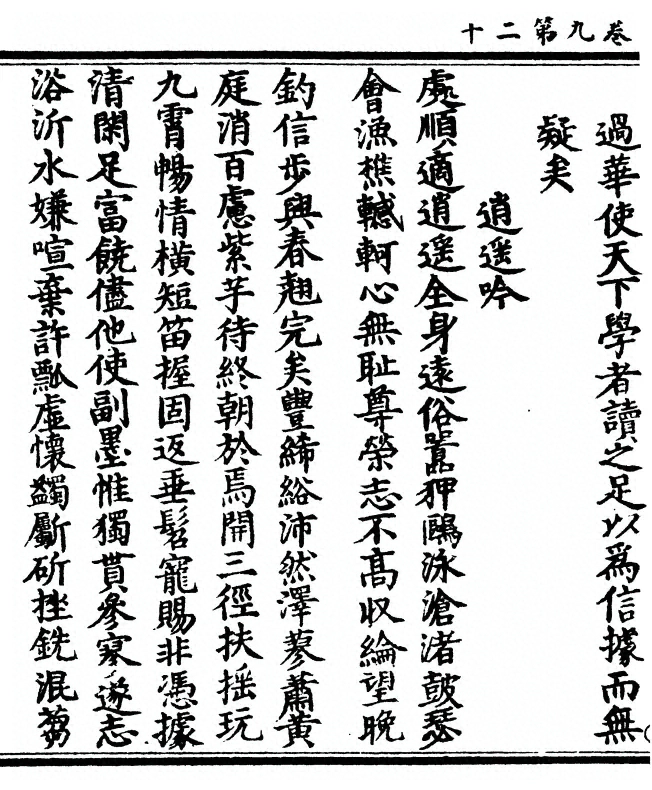 卷九第二十
過華使天下學者讀之足以爲信據而無
疑矣
逍遥吟
處順適逍遥全身遠俗囂狎鷗泳滄渚鼓瑟
會漁樵轗軻心無耻尊榮志不高收綸望晚
釣信步與春翹完矣豐絺綌沛然澤蓼蕭黄
庭消百慮紫芋待終朝於焉開三徑扶揺玩
九霄暢情横短笛握固返垂髫寵賜非憑據
清閑足富饒儘他使副墨惟獨貫參寥遂志
浴沂水嫌喧棄許瓢虛懷蠲斸斫挫銳混蒭